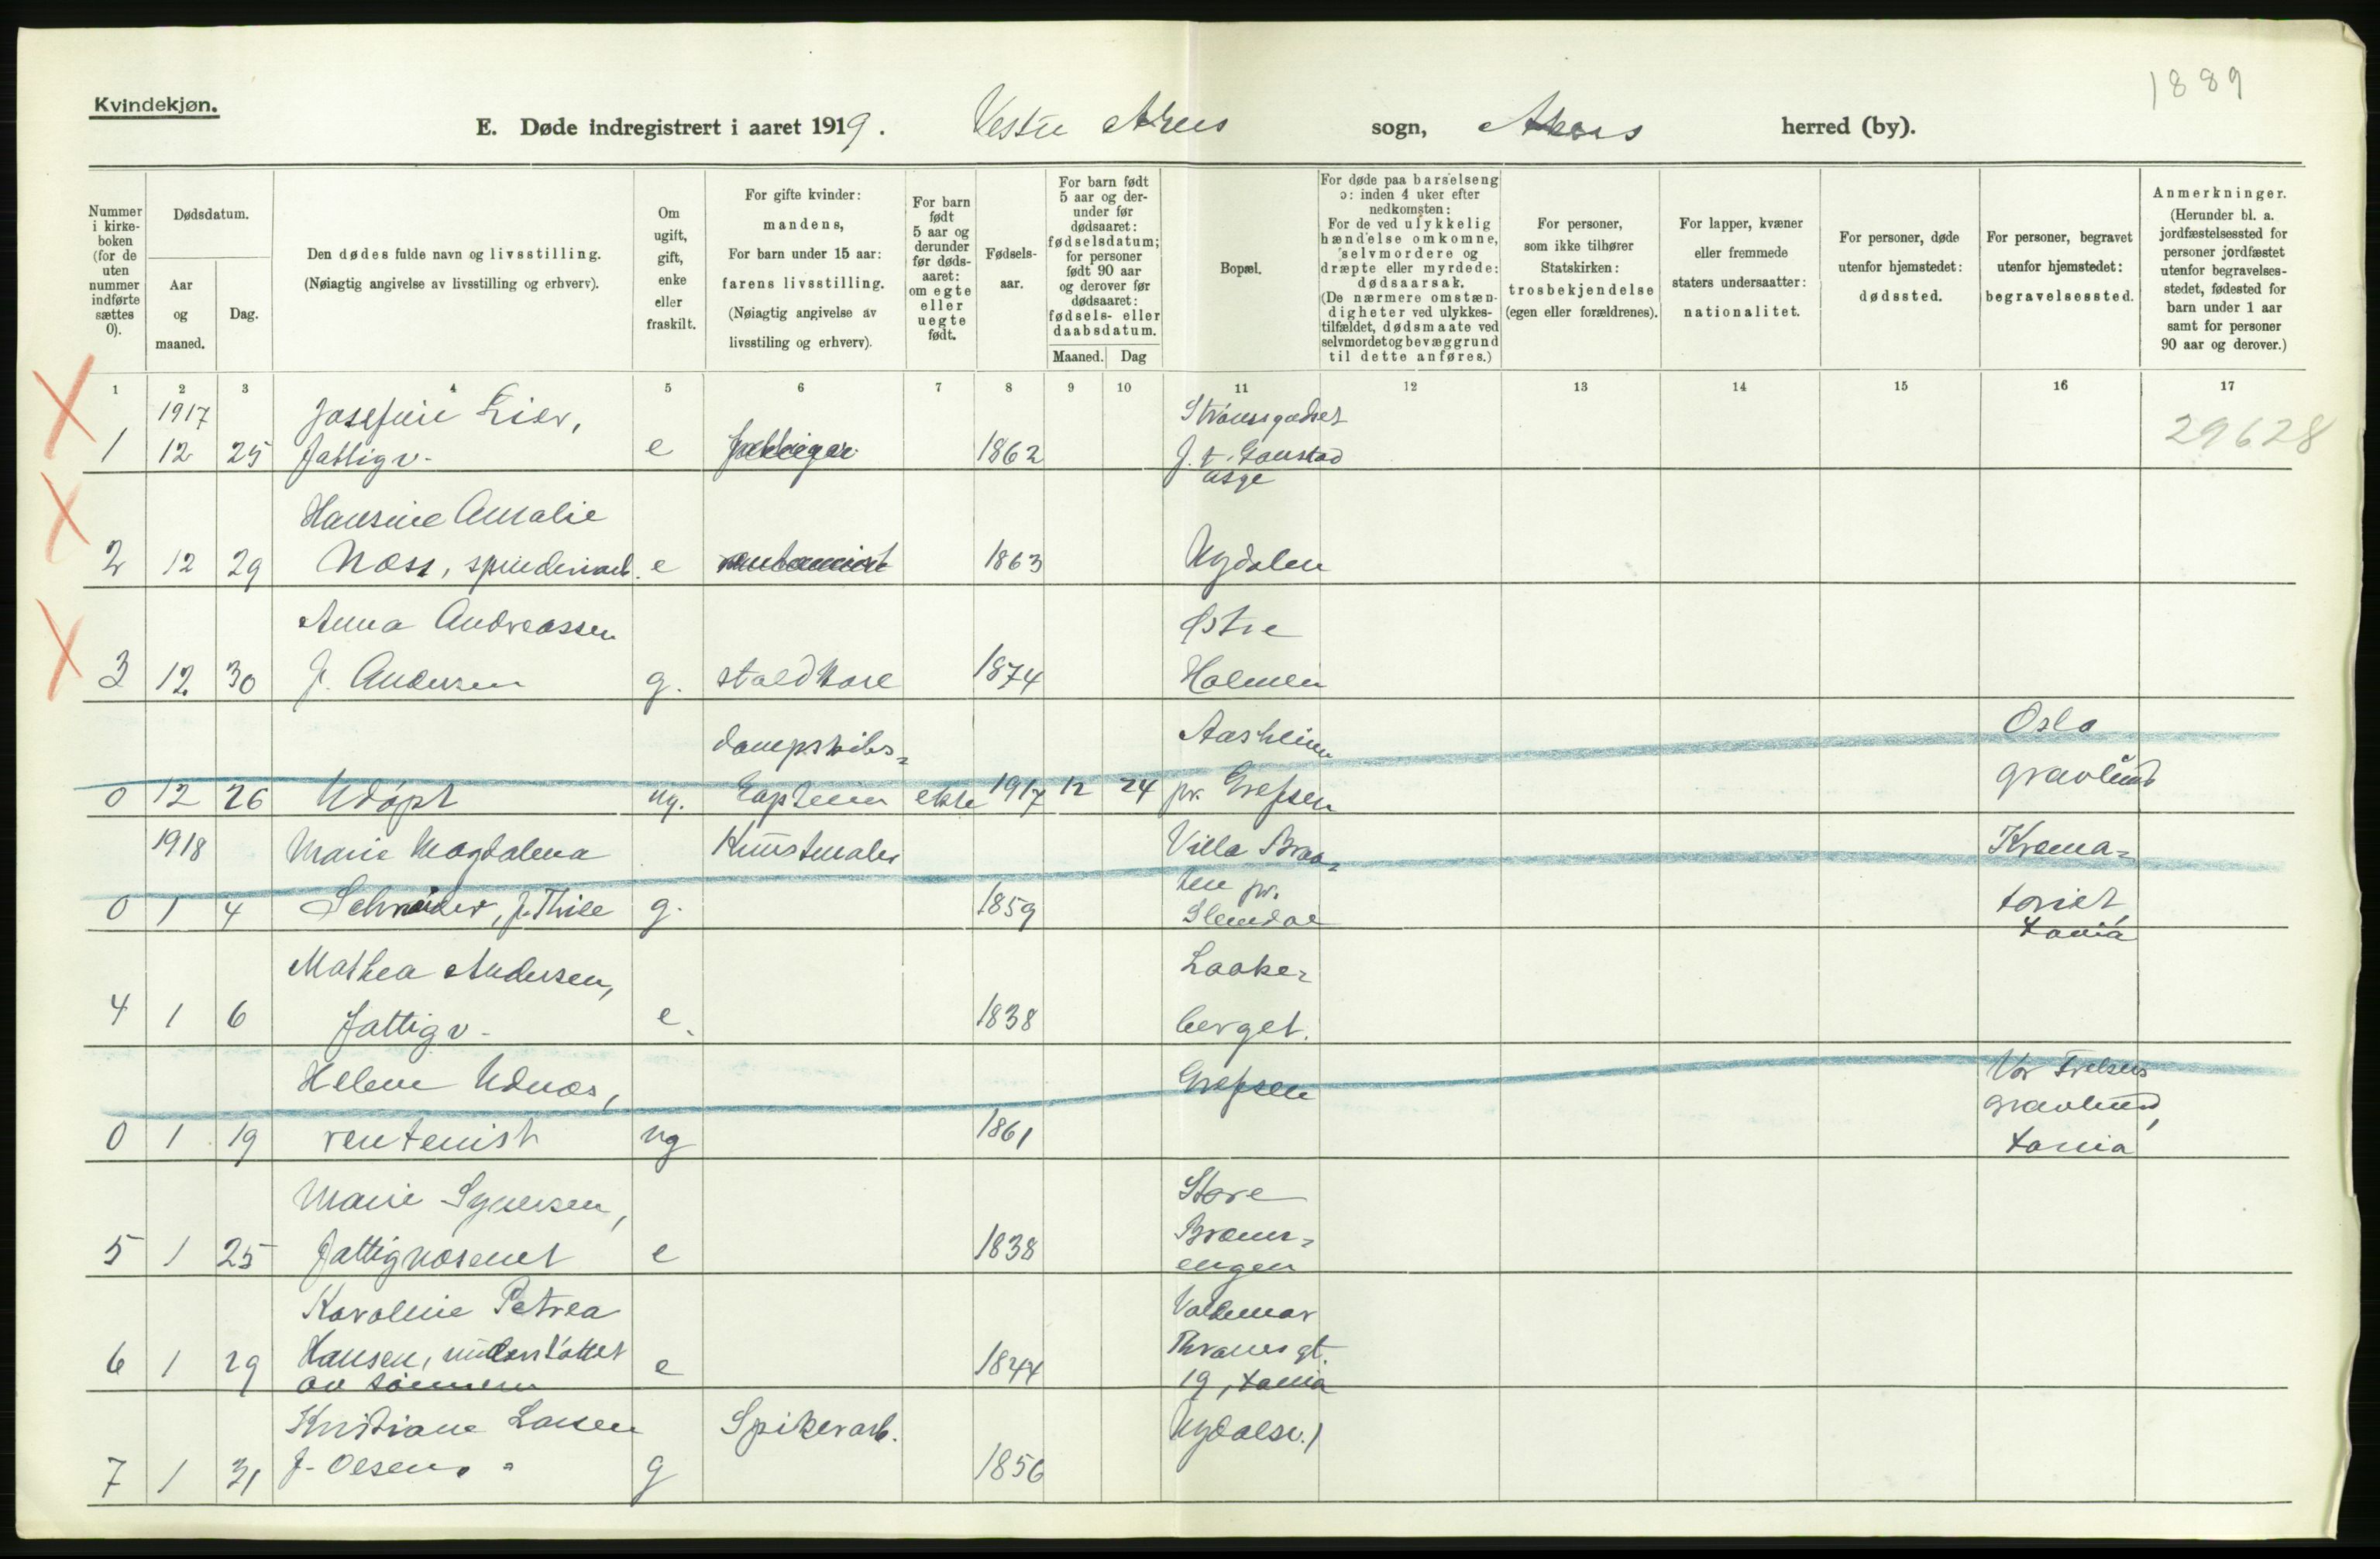 1889
Kvindekjøn.
E. Døde indregistrert i aaret 1919. Vestre Akers sogn, Akers herred (by).
Nummer i kirkeboken (for de uten nummer indførte sættes 0).
Dødsdatum.
Aar og maaned.
Dag.
Den dødes fulde navn og livsstilling.
(Nøiagtig angivelse av livsstilling og erhverv).
Om ugift, gift, enke eller fraskilt.
For gifte kvinder: mandens,
For barn under 15 aar: farens livsstilling.
(Nøiagtig angivelse av livsstiling og erhverv).
For barn født 5 aar og derunder før dødsaaret: om egte eller uegte født.
Fødselsaar.
For barn født 5 aar og derunder før dødsaaret: fødselsdatum; for personer født 90 aar og derover før dødsaaret: fødsels- eller daabsdatum.
Maaned. Dag
Bopæl.
For døde paa barselseng ɔ: inden 4 uker efter nedkomsten:
For de ved ulykkelig hændelse omkomne, selvmordere og dræpte eller myrdede: dødsaarsak.
(De nærmere omstændigheter ved ulykkestilfældet, dødsmaate ved selvmordet og bevæggrund til dette anføres.)
For personer, som ikke tilhører Statskirken: trosbekjendelse (egen eller forældrenes).
For lapper, kvæner eller fremmede staters undersaatter: nationalitet.
For personer, døde utenfor hjemstedet: dødssted.
For personer, begravet utenfor hjemstedet: begravelsessted.
Anmerkninger.
(Herunder bl. a. jordfæstelsessted for personer jordfæstet utenfor begravelsesstedet, fødested for barn under 1 aar samt for personer 90 aar og derover.)
1 2 3 4 5 6 7 8 9 10 11 12 13 14 15 16 17
1917 Josefine Lier, Strømsgodset
1 12 25 fattigv. e 1862 f. t. Gaustad
asyl
29628
Hansine Amalie
2 12 29 Næss, spinderiarb. e 1863 Nydalen
Anna Andreassen Østre
3 12 30 f. Andersen g. staldkarl 1874 Holmen
dampskibs- Aasheim Oslo
0 12 26 Udøpt ug. captein ekte 1917 12 24 pr. Grefsen gravlund
1918 Marie Magdalena Kunstmaler Villa Braa- Krema-
0 1 4 Schrøder, f. Thiee g. 1859 ten pr. toriet,
Slemdal Kania
Mathea Andersen, Laake-
4 1 6 fattigv. e. 1838 berget.
Helene Udnæs, Grefsen Vor Frelsers
gravlund,
0 1 19 rentenist ug 1861 Kania
Marie Syversen, Store
5 1 25 fattigvæsenet e 1838 Brænn-
engen
Karoline Petrea Valdemar
6 1 29 Hansen, understøttet e 1844 Thranesgt.
av sønnen 19, Kania
Kristiane Larsen Spikerarb. Nydalsv. 1
7 1 31 f. Olsen. g 1856